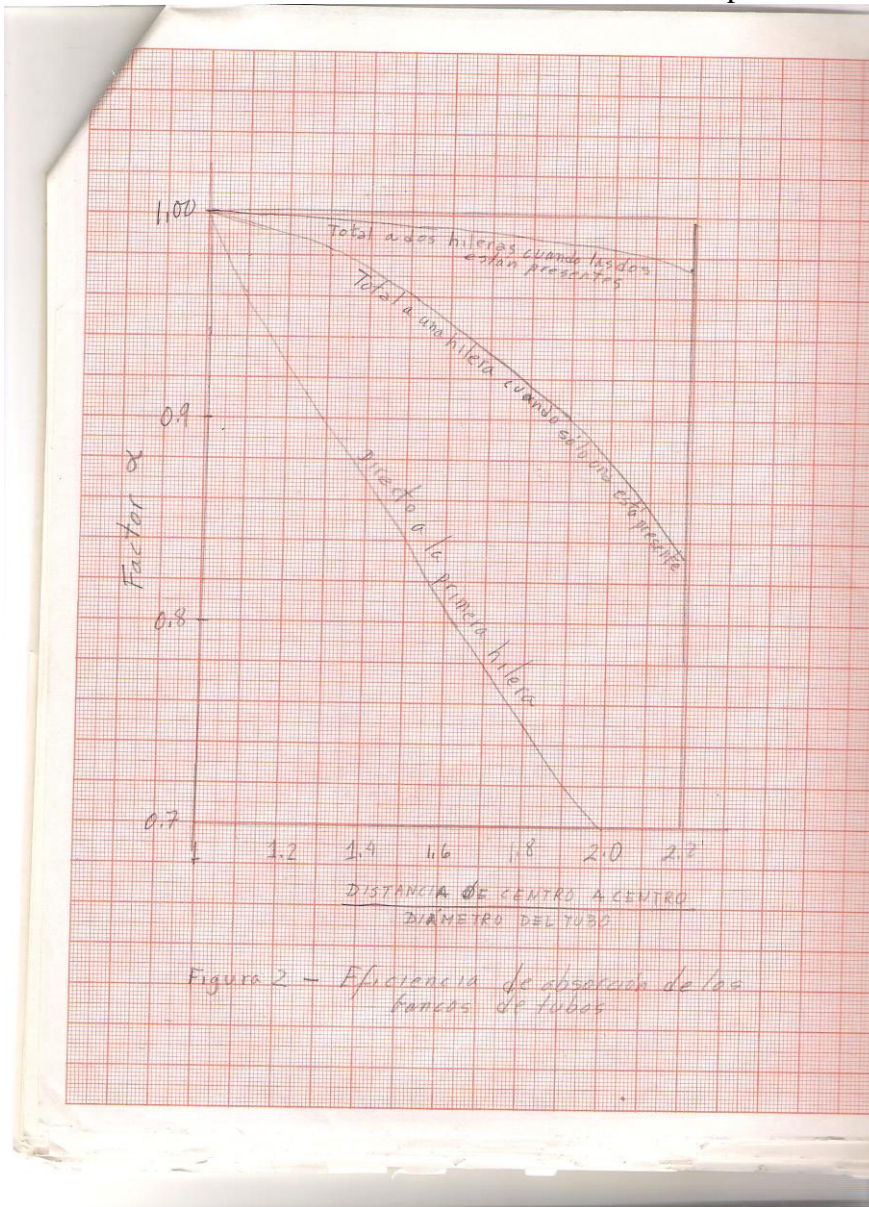 1.00
Total a dos hileras cuando las dos
están presentes
Total a una hilera cuando sólo una está presente
0.9
Factor α
Directo a la primera hilera
0.8
0.7
1 1.2 1.4 1.6 1.8 2.0 2.2
DISTANCIA DE CENTRO A CENTRO
DIÁMETRO DEL TUBO
Figura 2 - Eficiencia de absorción de los
bancos de tubos